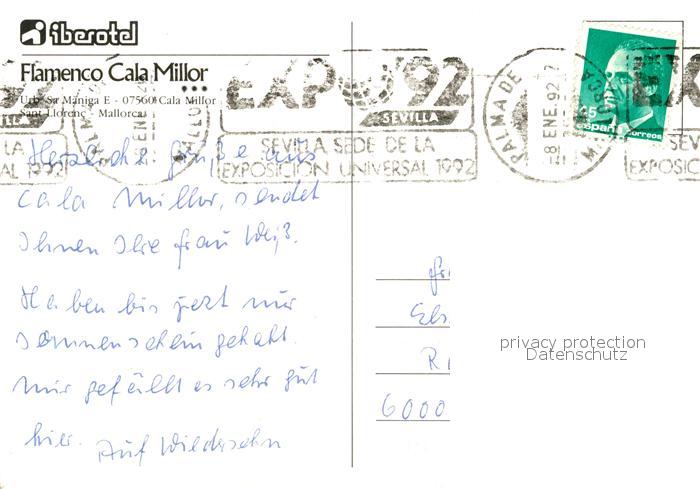 iberotel
Flamenco Cala Millor
★★★
Urb. Sa Màniga E - 07560 Cala Millor
Sant Llorenç - Mallorca
EXPO'92
SEVILLA
SEVILLA SEDE DE LA
EXPOSICIÓN UNIVERSAL 1992
PALMA DE MALLORCA
-8 ENE. 92
España correos
EXP
SEVILLA
EXPOSICIÓN
LA
AL 1992
Herzliche Grüße aus
Cala Millor, sendet
Ihnen Ihre Frau Weiß.
Haben bis jezt nur
Sonnenschein gehabt.
Mir gefällt es sehr gut
hier. Auf Wiedersehn
Fr
Els
R
6000
privacy protection
Datenschutz